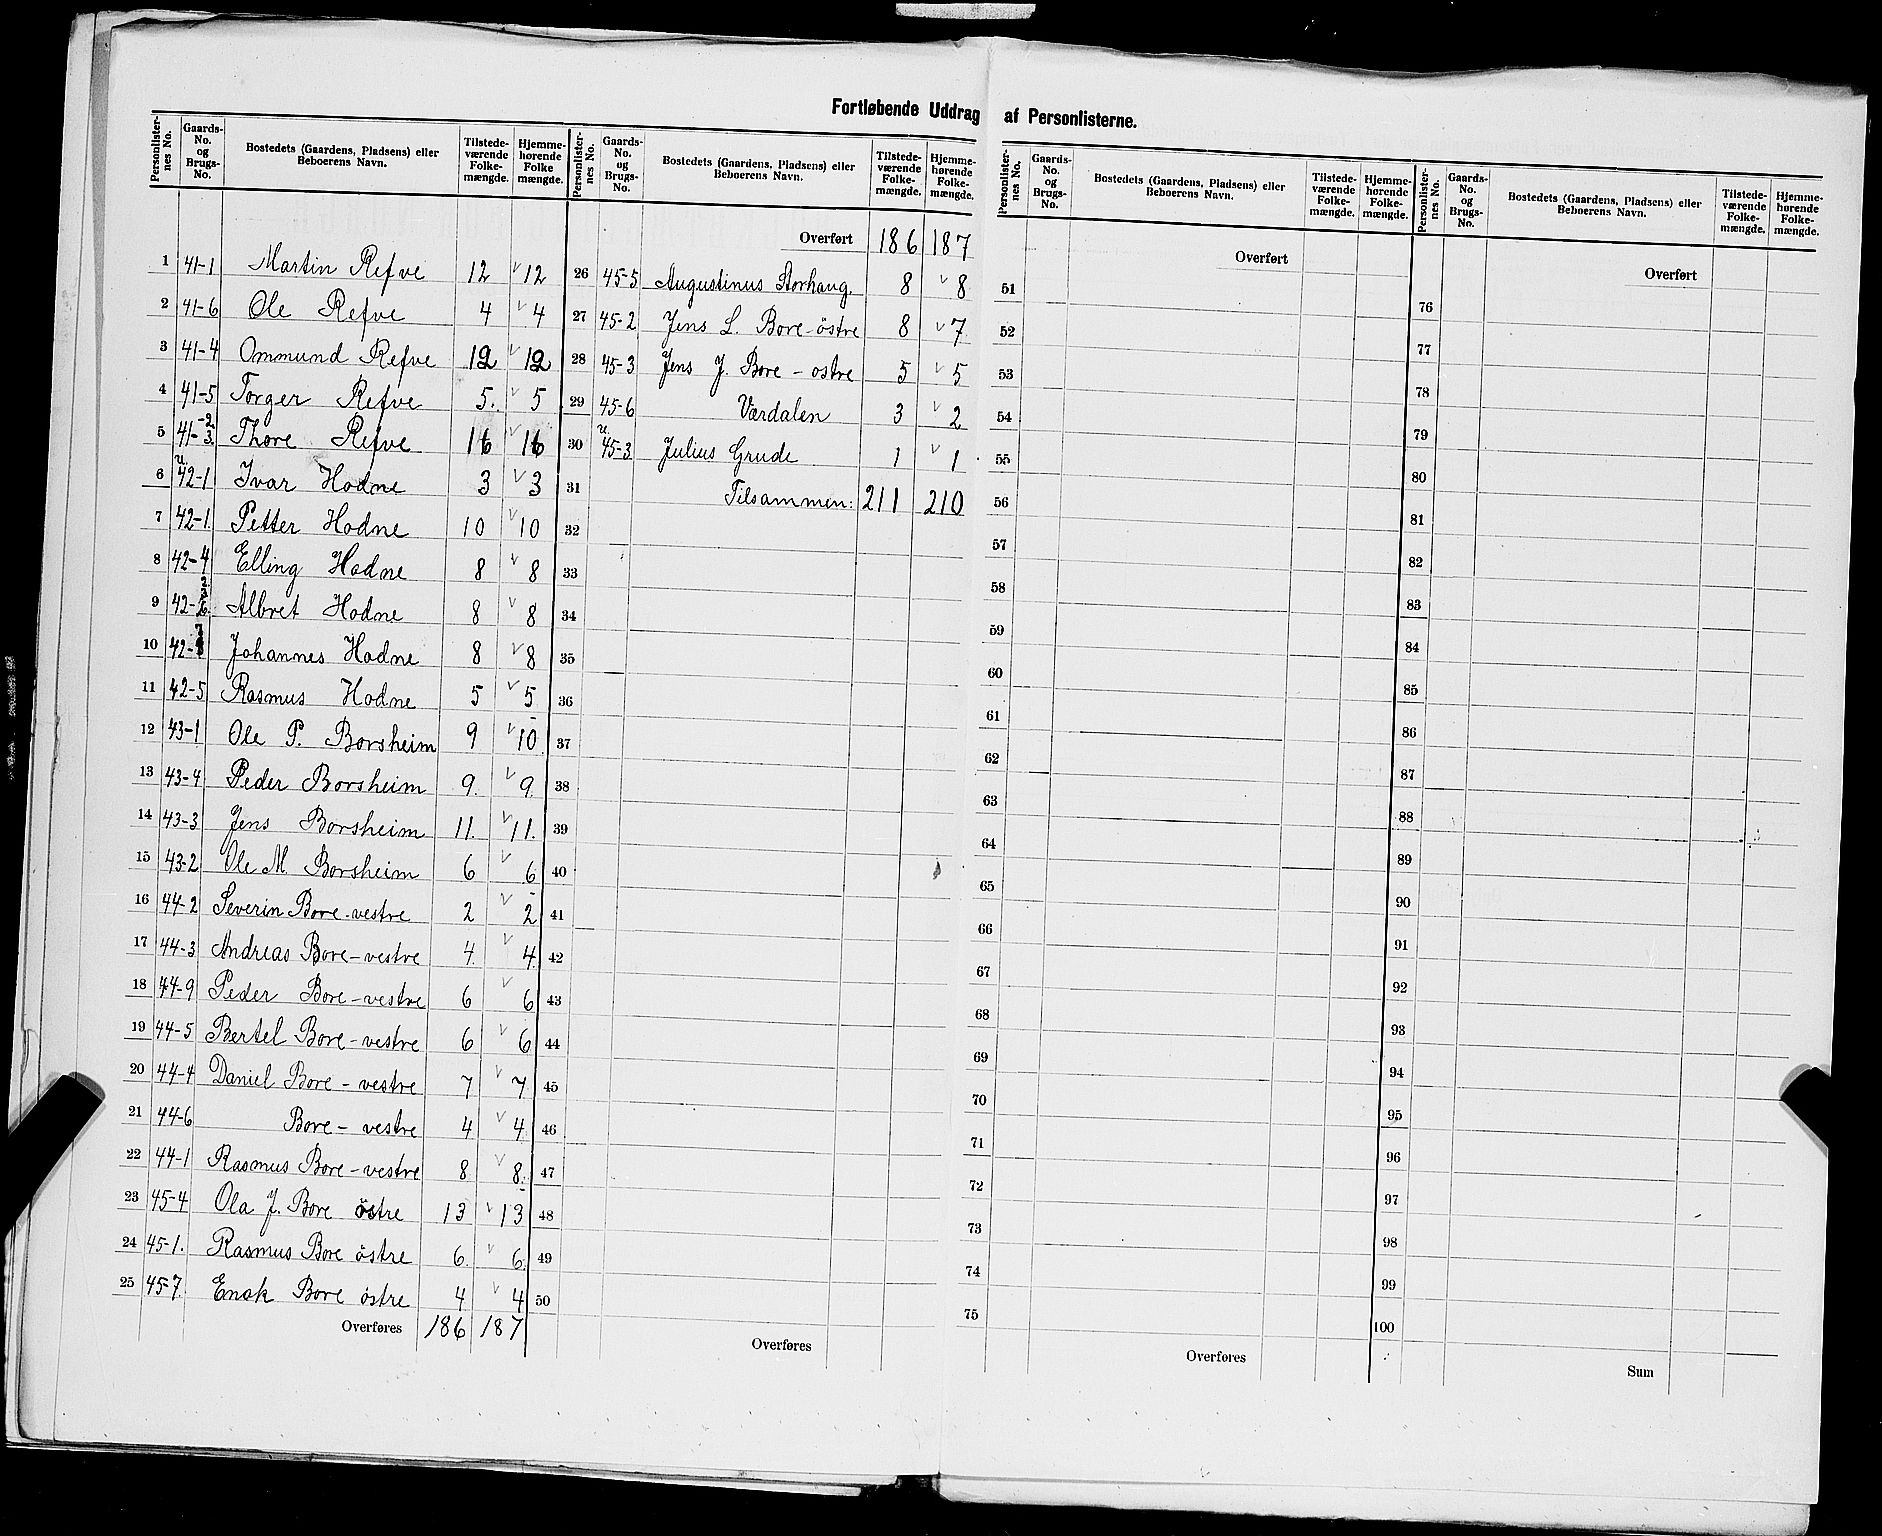 Fortløbende Uddrag af Personlisterne.
Personlister-nes No. Gaards-No. og Brugs-No. Bostedets (Gaardens, Pladsens) eller Beboerens Navn. Tilstede-værende Folke-mængde. Hjemme-hørende Folke mængde.
1 41-1 Martin Refve 12 v 12
2 41-6 Ole Refve 4 v 4
3 41-4 Ommund Refve 12 v 12
4 41-5 Torger Refve 5. v 5
5 41-2 3. Thore Refve 16 v 16
6 u 42-1 Ivar Hodne 3 v 3
7 42-1. Petter Hodne 10 v 10
8 42-4 Elling Hodne 8 v 8
9 42- Albret Hodne 8 v 8
10 42- Johannes Hodne 8 v 8
11 42-5 Rasmus Hodne 5 v 5
12 43-1 Ole P. Borsheim 9 v 10
13 43-4 Peder Borsheim 9. v 9.
14 43-3 Jens Borsheim 11. v 11.
15 43-2 Ole M Borsheim 6 v 6
16 44-2 Severin Bore-vestre 2 v 2
17 44-3 Andreas Bore-vestre 4. v 4.
18 44-9 Peder Bore-vestre 6 v 6
19 44-5 Bertel Bore-vestre 6 v 6
20 44-4 Daniel Bore-vestre 7 v 7
21 44-6 Bore-vestre 4 v 4
22 44-1 Rasmus Bore-vestre 8 v 8.
23 45-4 Ola J. Bore östre 13 v 13
24 45-1. Rasmus Bore östre 6. v 6.
25 45-7. Enok Bore östre 4 v 4
Overføres 186 187
Personlister-nes No. Gaards-No. og Brugs-No. Bostedets (Gaardens, Pladsens) eller Beboerens Navn. Tilstede-værende Folke-mængde. Hjemme-hørende Folke-mængde.
Overført 186 187
26 45-5 Augustinus Storhaug. 8 v 8
27 45-2 Jens L. Bore-östre 8 v 7
28 45-3 Jens J. Bore-ostre 5 v 5
29 45-6 Værdalen 3 v 2
30 u. 45-3 Julius Grude 1 v 1
31 Tilsammen: 211 210
32
33
34
35
36
37
38
39
40
41
42
43
44
45
46
47
48
49
50
Overføres
Personlister-nes No. Gaards-No. og Brugs-No. Bostedets (Gaardens, Pladsens) eller Beboerens Navn. Tilstede-værende Folke-mængde. Hjemme-hørende Folke-mængde.
Overført
51
52
53
54
55
56
57
58
59
60
61
62
63
64
65
66
67
68
69
70
71
72
73
74
75
Overføres
Personlister-nes No. Gaards-No. og Brugs-No. Bostedets (Gaardens, Pladsens) eller Beboerens Navn. Tilstede-værende Folke-mængde. Hjemme-hørende Folke-mængde.
Overført
76
77
78
79
80
81
82
83
84
85
86
87
88
89
90
91
92
93
94
95
96
97
98
99
100
Sum